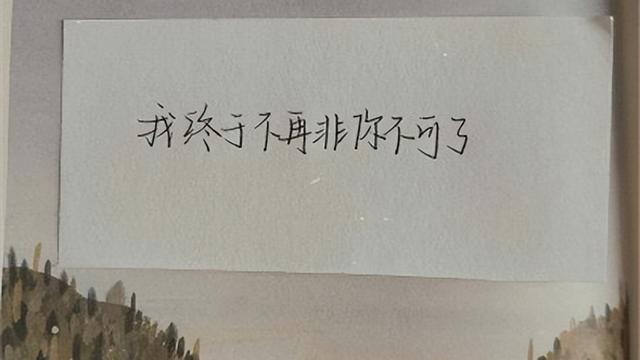 我终于不再非你不可了